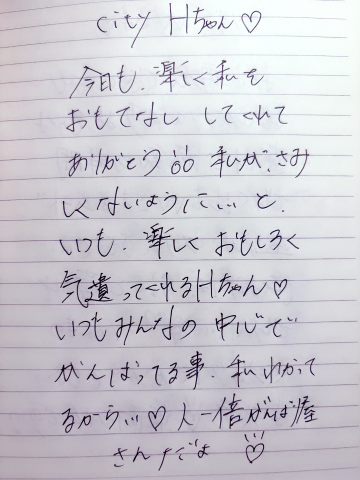 city Hちゃん♡
今日も、楽しく私を
おもてなし してくれて
ありがとう!! 私が、さみ
しくないように... と、
いつも、楽しく おもしろく
気遣ってくれるHちゃん♡
いつもみんなの 中心で
がんばってる事、私わかって
るから...♡ 人一倍がんば屋
さんだよ ♡